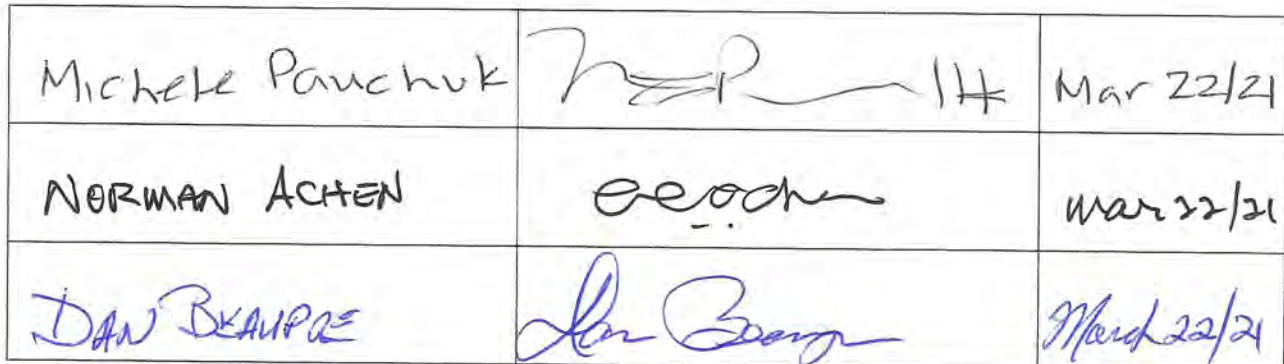 Michele Pauchuk Mar 22/21
NORMAN ACHEN mar 22/21
DAN BEAUPRE March 22/21